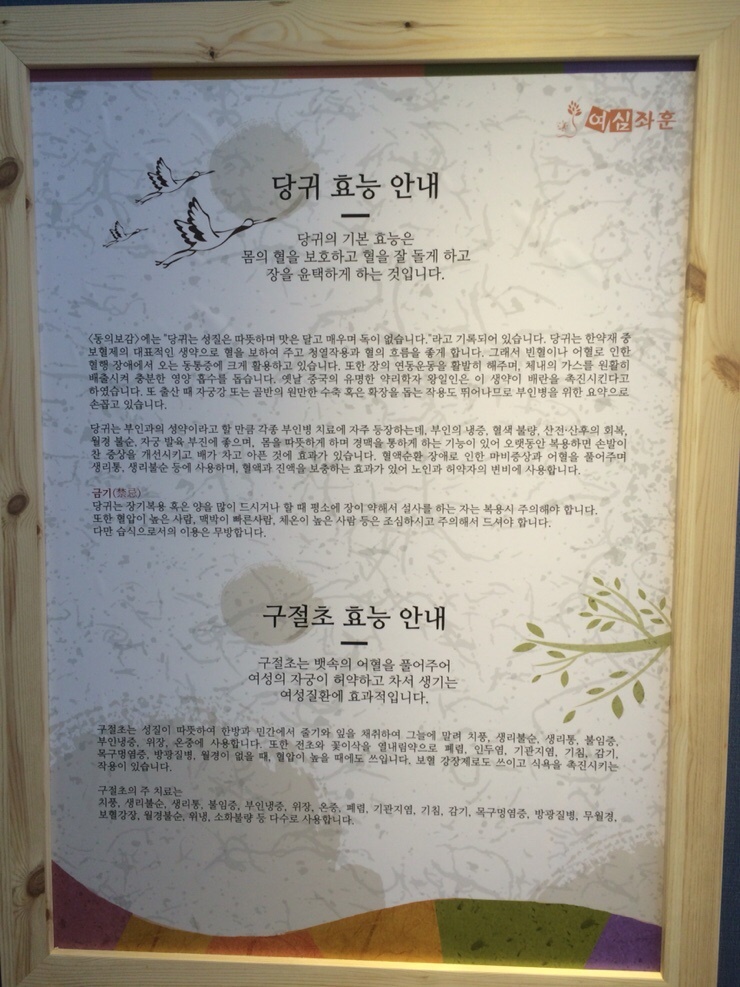 여심좌훈
당귀 효능 안내
당귀의 기본 효능은
몸의 혈을 보호하고 혈을 잘 돌게 하고
장을 윤택하게 하는 것입니다.
〈동의보감〉에는 "당귀는 성질은 따뜻하며 맛은 달고 매우며 독이 없습니다."라고 기록되어 있습니다. 당귀는 한약재 중
보혈제의 대표적인 생약으로 혈을 보하여 주고 청열작용과 혈의 흐름을 좋게 합니다. 그래서 빈혈이나 어혈로 인한
혈행 장애에서 오는 동통증에 크게 활용하고 있습니다. 또한 장의 연동운동을 활발히 해주며, 체내의 가스를 원활히
배출시켜 충분한 영양 흡수를 돕습니다. 옛날 중국의 유명한 약리학자 왕일인은 이 생약이 배란을 촉진시킨다고
하였습니다. 또 출산 때 자궁강 또는 골반의 원만한 수축 혹은 확장을 돕는 작용도 뛰어나므로 부인병을 위한 요약으로
손꼽고 있습니다.
당귀는 부인과의 성약이라고 할 만큼 각종 부인병 치료에 자주 등장하는데, 부인의 냉증, 혈색 불량, 산전·산후의 회복,
월경 불순, 자궁 발육 부진에 좋으며, 몸을 따뜻하게 하며 경맥을 통하게 하는 기능이 있어 오랫동안 복용하면 손발이
찬 증상을 개선시키고 배가 차고 아픈 것에 효과가 있습니다. 혈액순환 장애로 인한 마비증상과 어혈을 풀어주며
생리통, 생리불순 등에 사용하며, 혈액과 진액을 보충하는 효과가 있어 노인과 허약자의 변비에 사용합니다.
금기(禁忌)
당귀는 장기복용 혹은 양을 많이 드시거나 할 때 평소에 장이 약해서 설사를 하는 자는 복용시 주의해야 합니다.
또한 혈압이 높은 사람, 맥박이 빠른사람, 체온이 높은 사람 등은 조심하시고 주의해서 드셔야 합니다.
다만 습식으로서의 이용은 무방합니다.
구절초 효능 안내
구절초는 뱃속의 어혈을 풀어주어
여성의 자궁이 허약하고 차서 생기는
여성질환에 효과적입니다.
구절초는 성질이 따뜻하여 한방과 민간에서 줄기와 잎을 채취하여 그늘에 말려 치풍, 생리불순, 생리통, 불임증,
부인냉증, 위장, 온중에 사용합니다. 또한 전초와 꽃이삭을 열내림약으로 폐렴, 인두염, 기관지염, 기침, 감기,
목구멍염증, 방광질병, 월경이 없을 때, 혈압이 높을 때에도 쓰입니다. 보혈 강장제로도 쓰이고 식욕을 촉진시키는
작용이 있습니다.
구절초의 주 치료는
치풍, 생리불순, 생리통, 불임증, 부인냉증, 위장, 온중, 폐렴, 기관지염, 기침, 감기, 목구멍염증, 방광질병, 무월경,
보혈강장, 월경불순, 위냉, 소화불량 등 다수로 사용합니다.